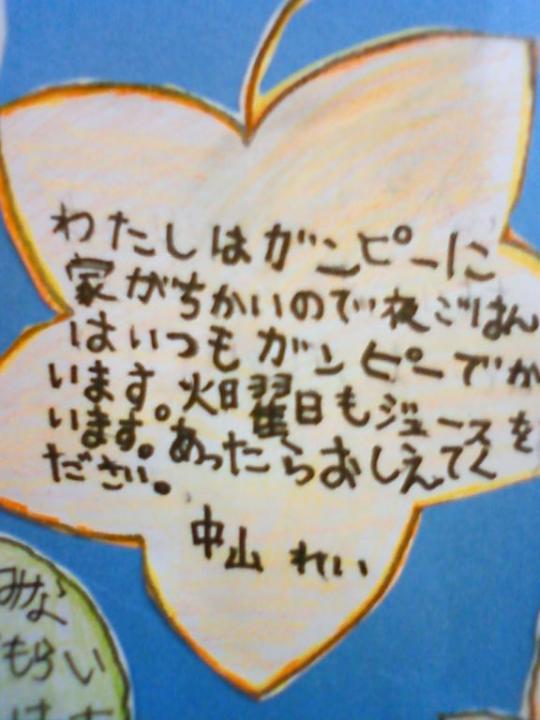 わたしはガンピーに
家がちかいので夜ごはん
はいつもガンピーでか
います。火曜日もジュースを
います。あったらおしえてく
ださい。
中山 れい
みな
もらい